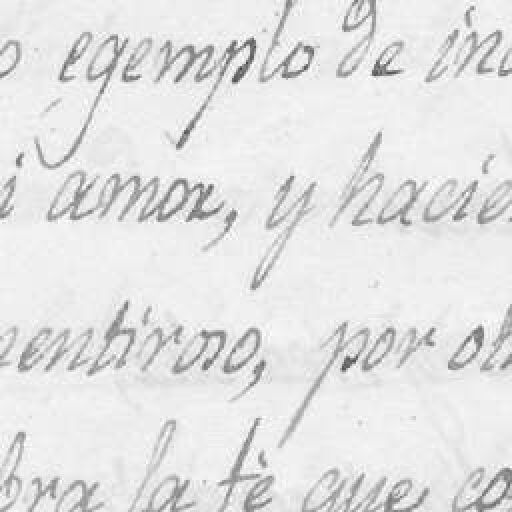 o egemplo de ind
i amor, y hacien
mentiroso, por ot
bra la fè que co